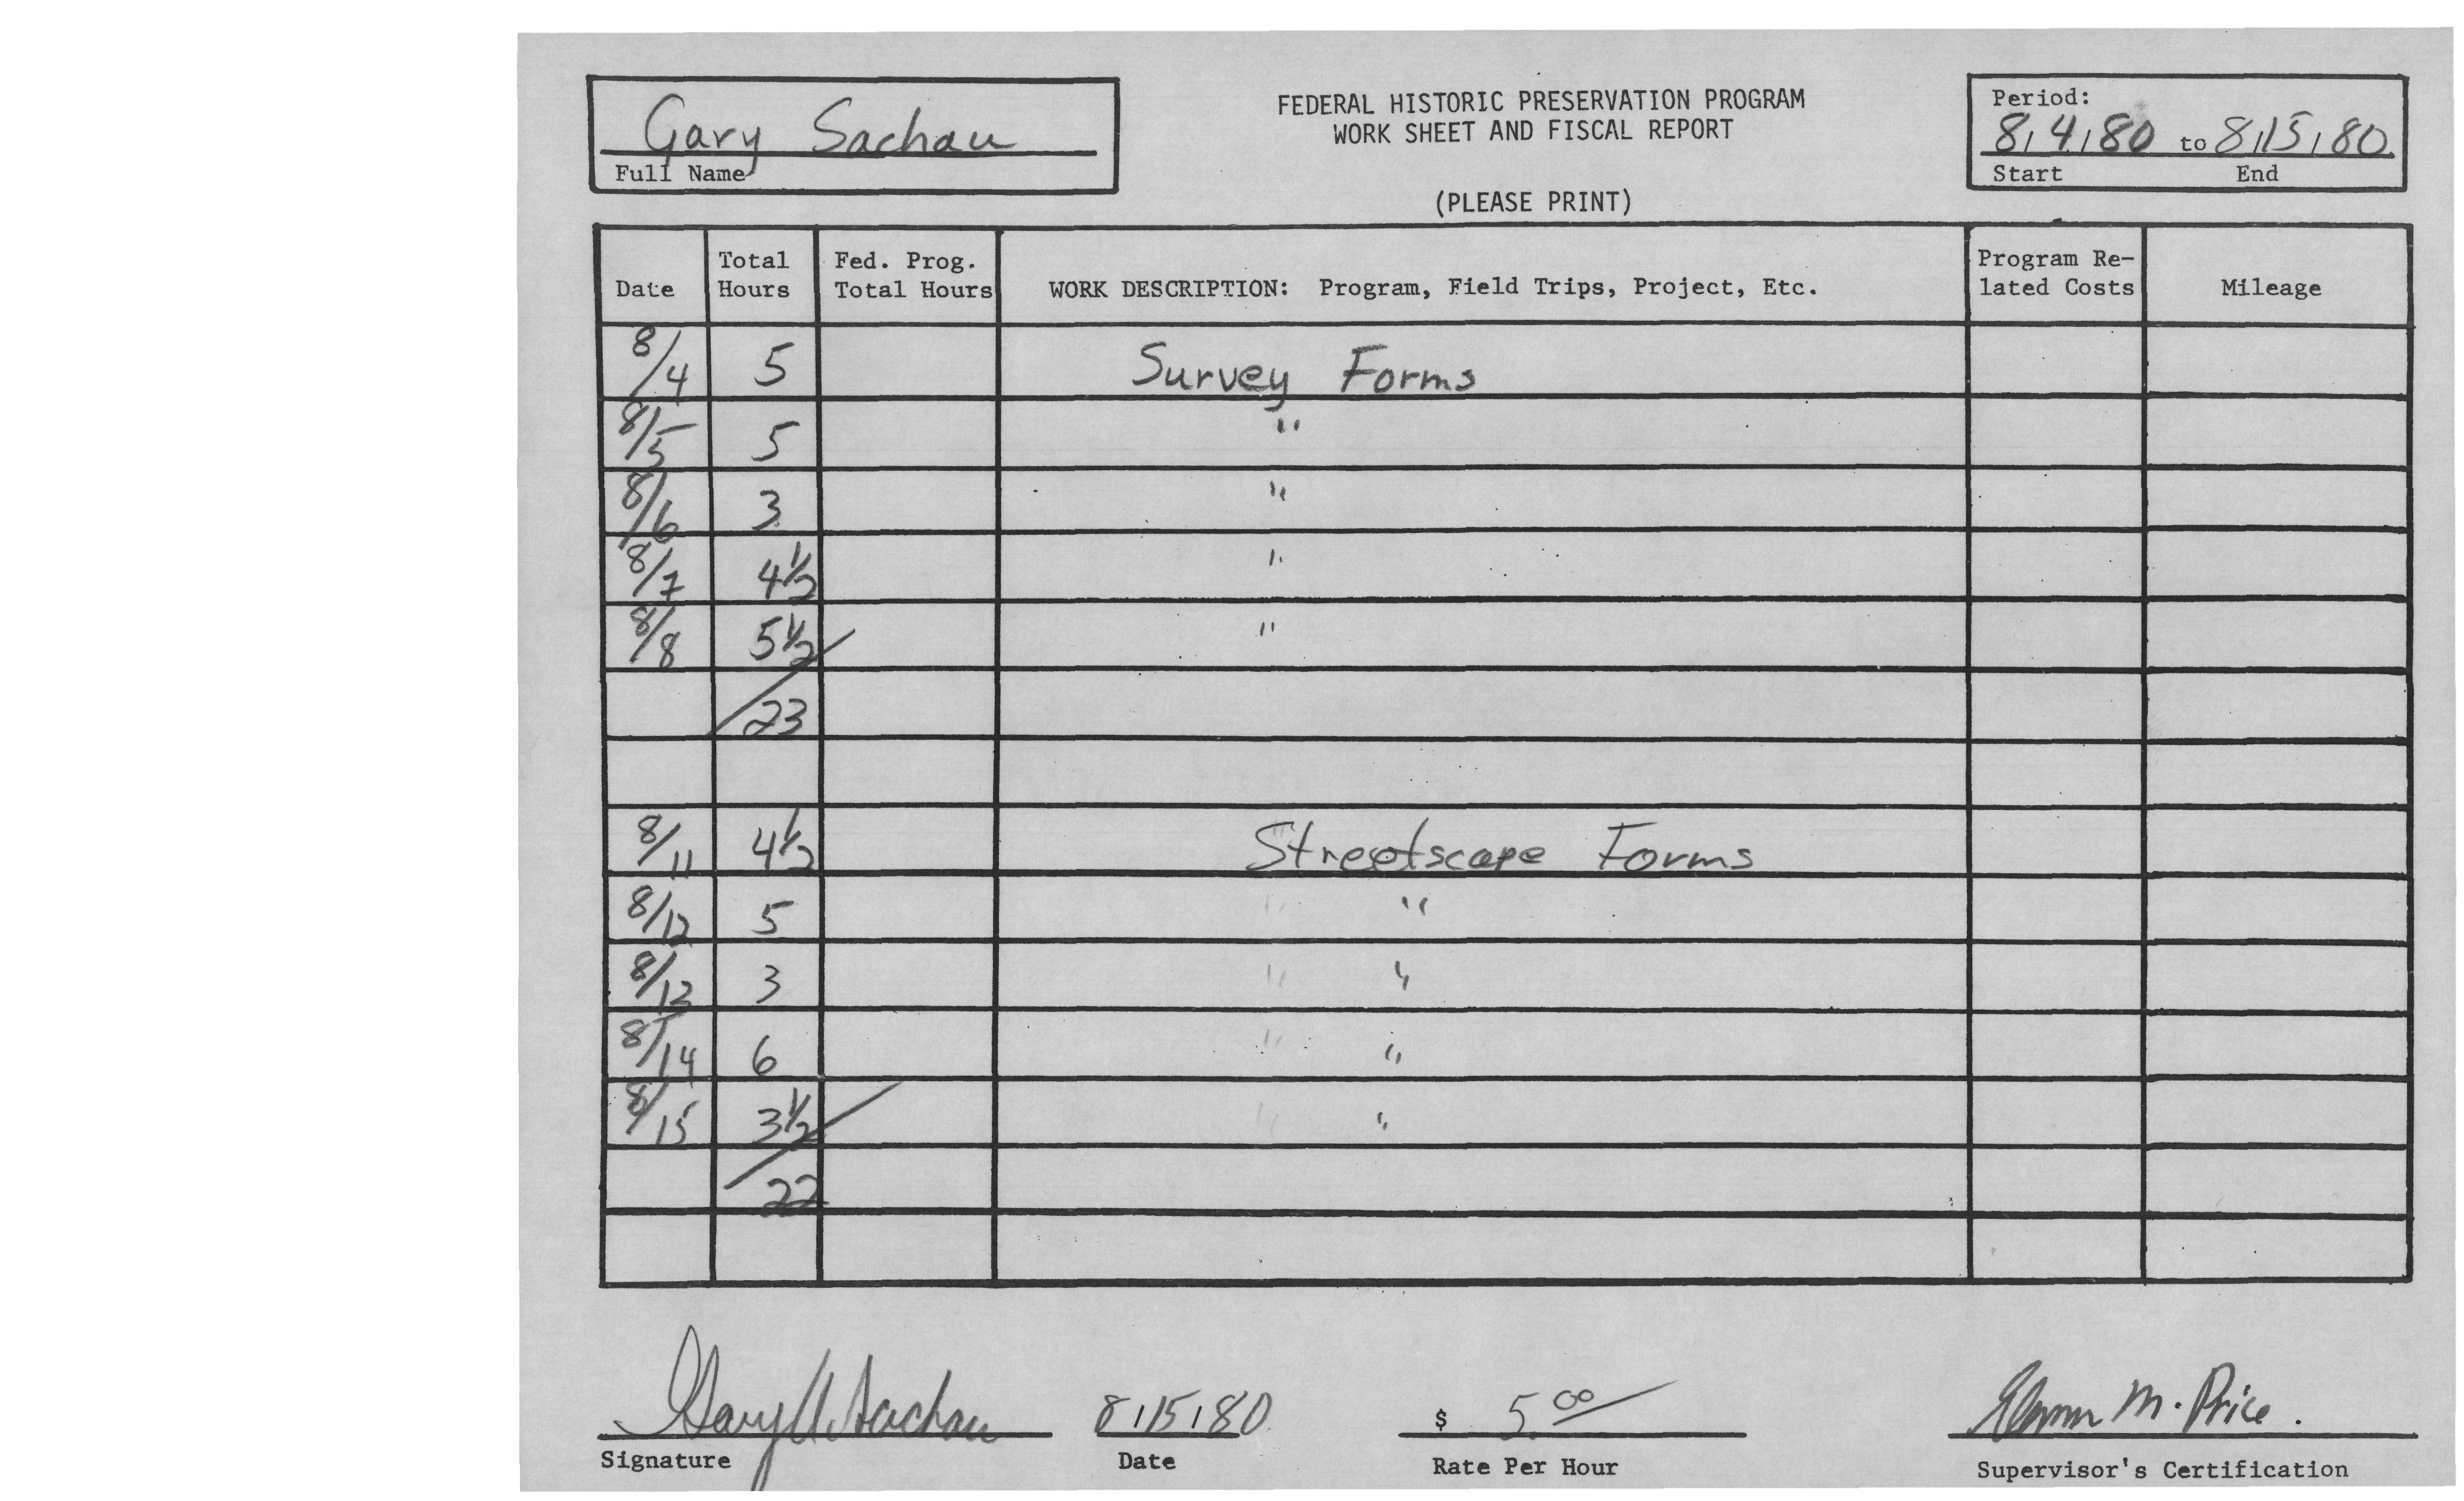 Gary Sachau
Full Name
FEDERAL HISTORIC PRESERVATION PROGRAM
WORK SHEET AND FISCAL REPORT
(PLEASE PRINT)
Period:
8/4/80 to 8/15/80
Start End
Date Total Hours Fed. Prog. Total Hours WORK DESCRIPTION: Program, Field Trips, Project, Etc. Program Re-lated Costs Mileage
8/4 5 Survey Forms
8/5 5 "
8/6 3 "
8/7 4½ "
8/8 5½ "
23
8/11 4½ Streetscape Forms
8/12 5 " "
8/13 3 " "
8/14 6 " "
8/15 3½ " "
22
Gary Sachau 8/15/80 $ 5.00 M. Price.
Signature Date Rate Per Hour Supervisor's Certification